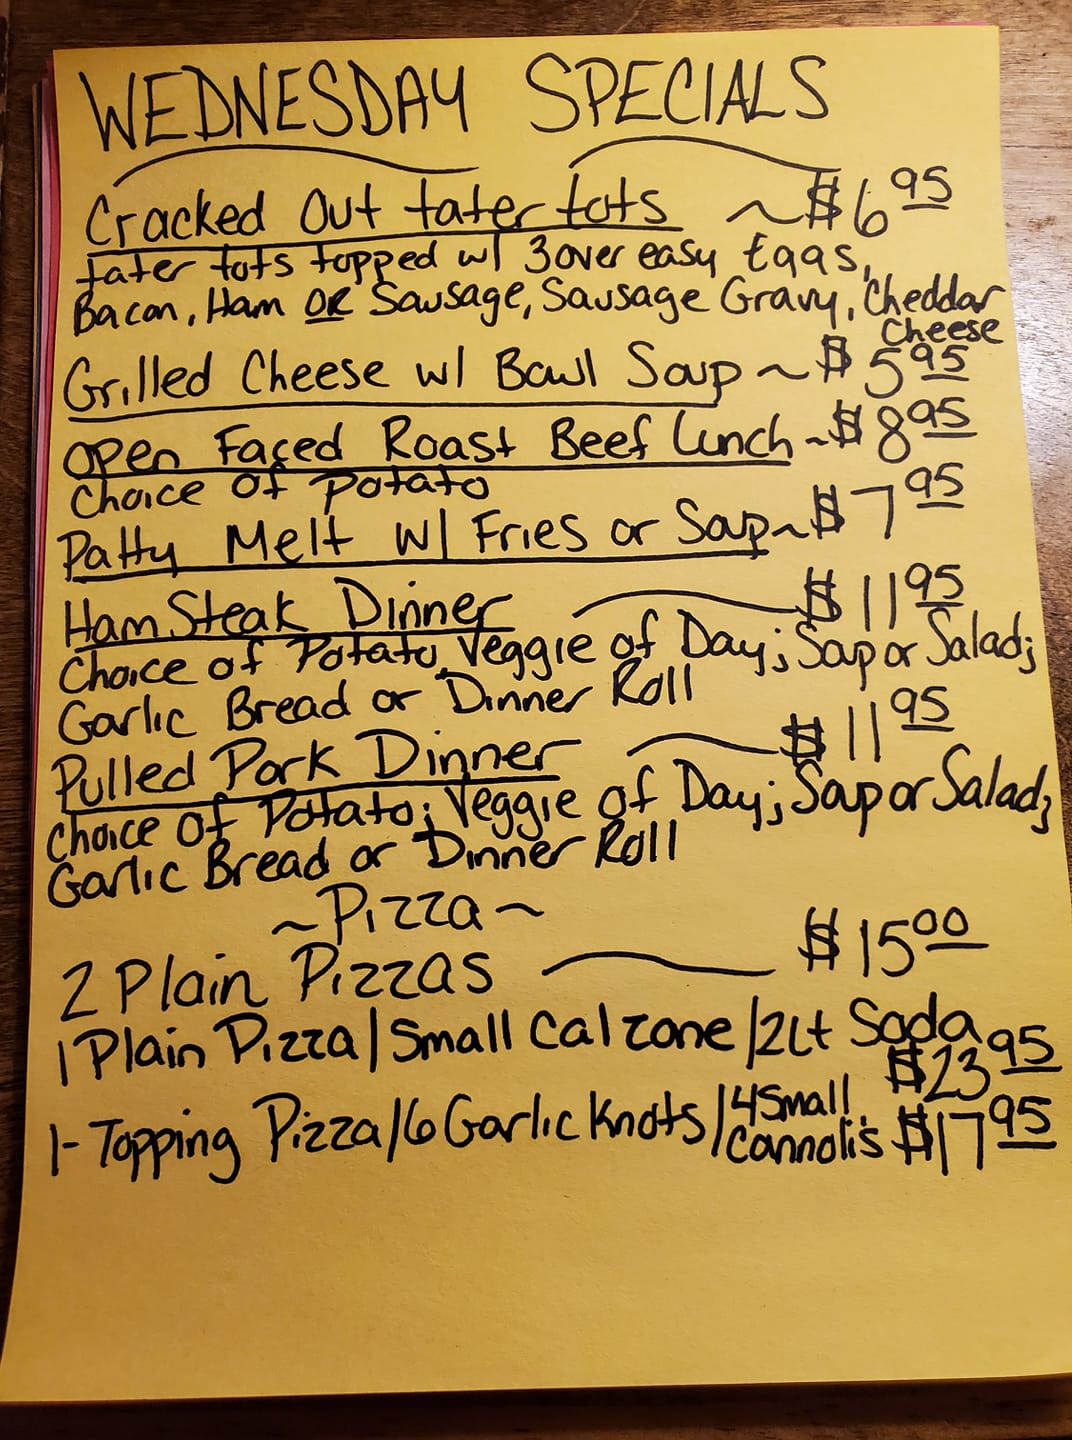 WEDNESDAY SPECIALS
Cracked Out tater tots ~ $6.95
tater tots topped w/ 3 over easy Eggs,
Bacon, Ham OR Sausage, Sausage Gravy, Cheddar
Cheese
Grilled Cheese w/ Bowl Soup ~ $5.95
Open Faced Roast Beef Lunch ~ $8.95
Choice of Potato
Patty Melt w/ Fries or Soup ~ $7.95
Ham Steak Dinner $11.95
Choice of Potato, Veggie of Day; Soup or Salad;
Garlic Bread or Dinner Roll
Pulled Pork Dinner $11.95
Choice of Potato; Veggie of Day; Soup or Salad;
Garlic Bread or Dinner Roll
~ Pizza ~
2 Plain Pizzas $15.00
1 Plain Pizza / Small Calzone / 2Lt Soda
$23.95
1-Topping Pizza / 6 Garlic Knots / 4 Small
Cannoli's $17.95